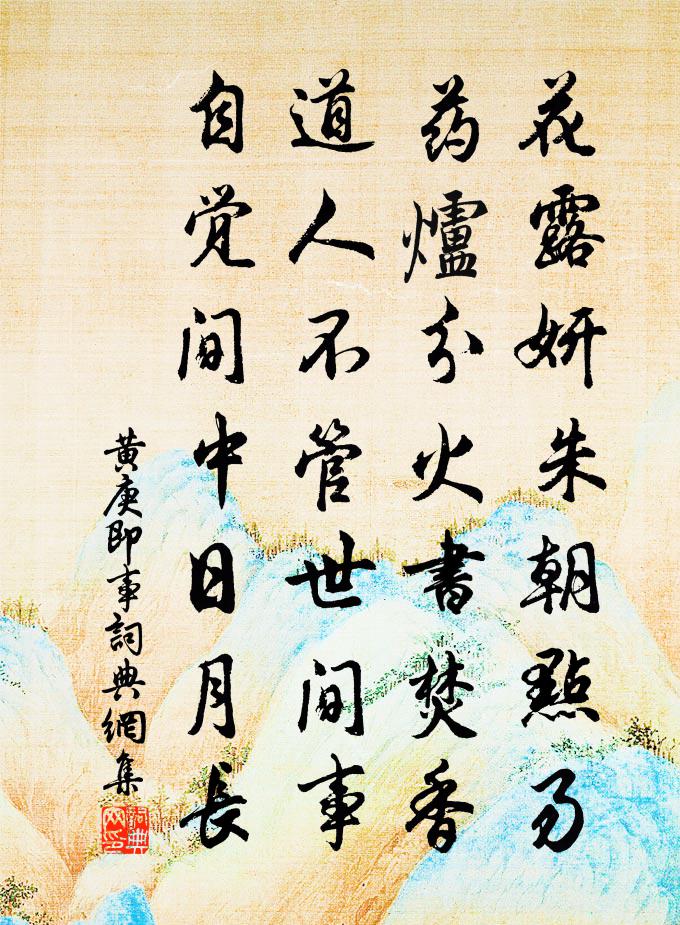 花露妍朱朝點易
药爐分火書焚香
道人不管世间事
自觉间中日月長
黄庚即事詞典網集
詞典网印